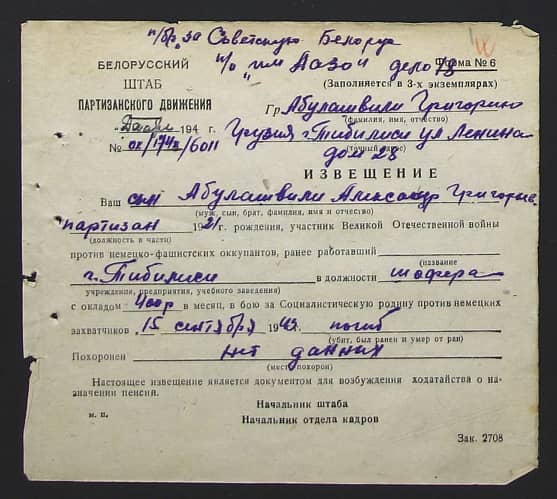 п/бр. за Советскую Белорус
п/о "им Лазо" дело 18
БЕЛОРУССКИЙ
ШТАБ
ПАРТИЗАНСКОГО ДВИЖЕНИЯ
194 г.
№ 6011
Форма № 6
(Заполняется в 3-х экземплярах)
Гр. Абулашвили Григорию
(фамилия, имя, отчество)
Грузия г. Тибилиси ул Ленина
(точный адрес)
дом 28
ИЗВЕЩЕНИЕ
Ваш сын Абулашвили Александр Григорье
(муж, сын, брат, фамилия, имя и отчество)
партизан 1921 г. рождения, участник Великой Отечественной войны
(должность в части)
против немецко-фашистских оккупантов, ранее работавший
(название
г. Тибилиси в должности шофера
учреждения, предприятия, учебного заведения)
с окладом 400 р в месяц, в бою за Социалистическую родину против немецких
захватчиков 15 сентября 1943 погиб
(убит, был ранен и умер от ран)
Похоронен нет данных
(место похорон)
Настоящее извещение является документом для возбуждения ходатайства о на-
значении пенсии.
Начальник штаба
м. п.
Начальник отдела кадров
Зак. 2708